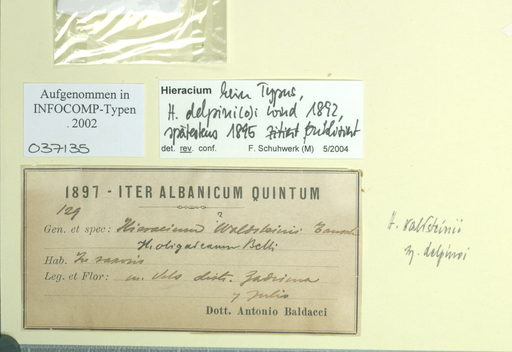 Aufgenommen in
INFOCOMP-Typen
. 2002
037135
Hieracium kein Typus,
H. delpini(o)i 1892,
spätestens 1895 zitiert, publiziert
det. rev. conf. F. Schuhwerk (M) 5/2004
1897 - ITER ALBANICUM QUINTUM
129
Gen. et spec: Hieracium ? Waldsteinii Tausch
Hab. In saxosis
Leg. et Flor: m. distr. Zadrima
7 Julio
Dott. Antonio Baldacci
H. valdsteinii
delpinoi